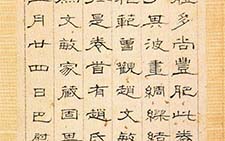 多尚豐肥此卷
其波畫綢繆結
範曾觀趙文敏
是卷首有趙氏
為文敏家藏固
月廿四日巴慰